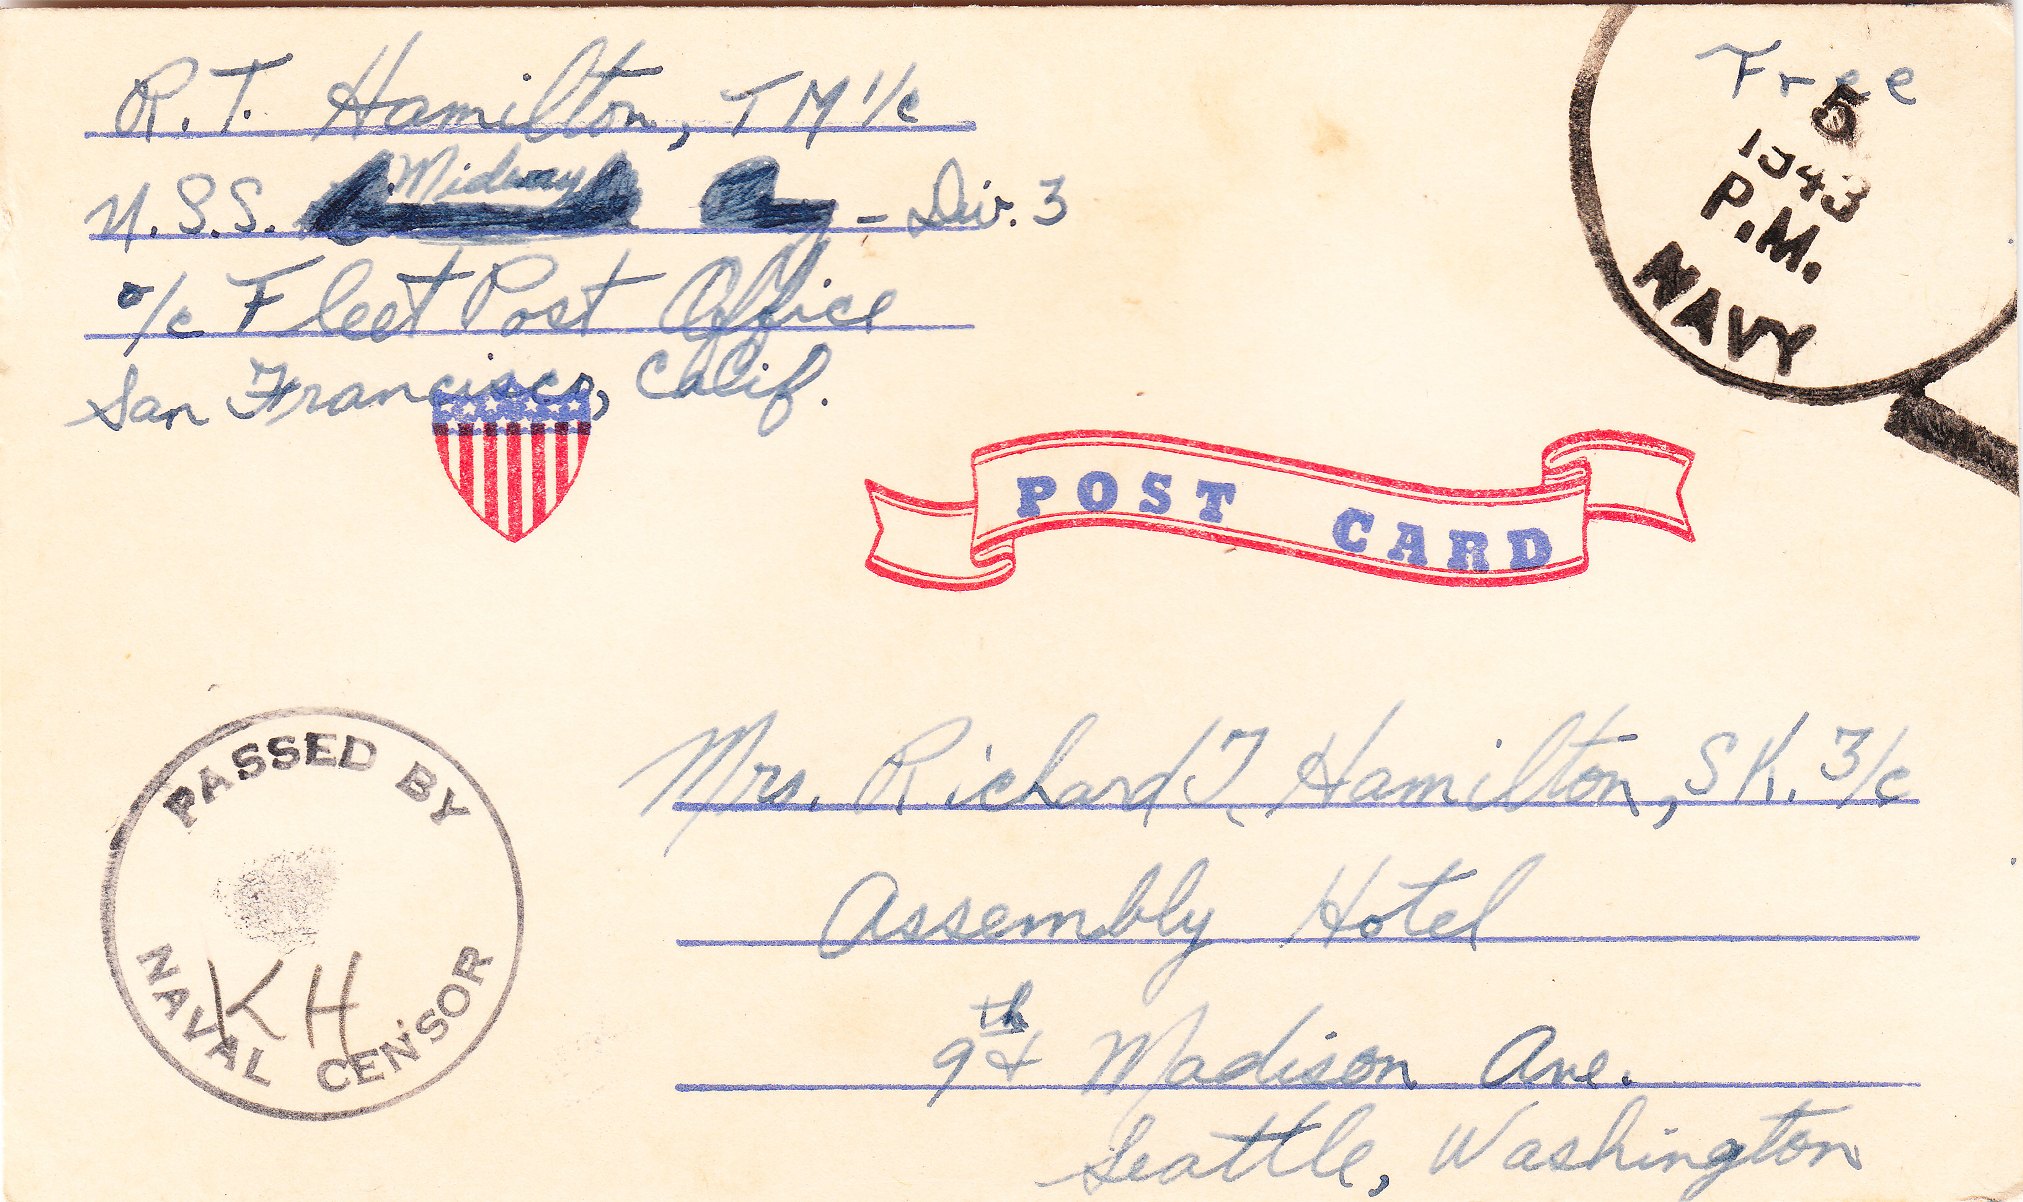 R. T. Hamilton, TM 1/c
U.S.S. Midway - Div. 3
c/c Fleet Post Office
San Francisco, Calif.
Free
5
1943
P.M.
NAVY
POST CARD
PASSED BY
KH
NAVAL CENSOR
Mrs. Richard T. Hamilton, SK. 3/c
Assembly Hotel
9th & Madison Ave.
Seattle, Washington